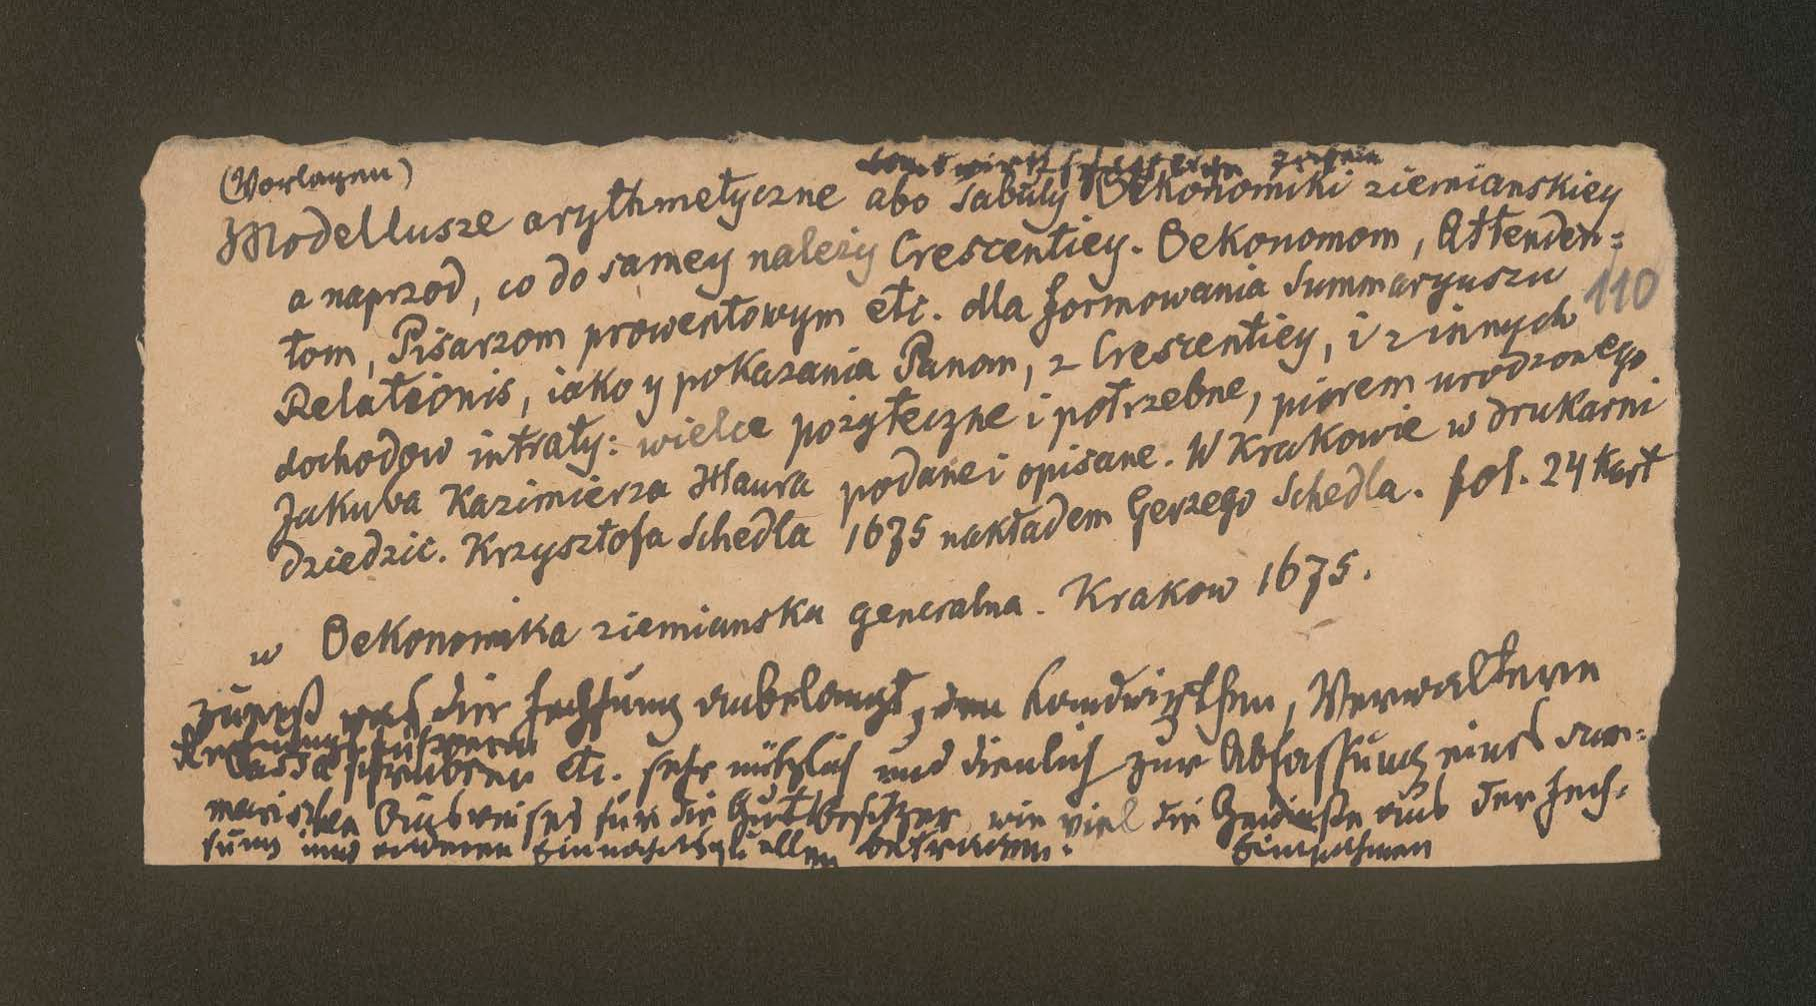 (Vorlagen)
Modellusze arythmetyczne abo Tabuly Oekonomiki ziemianskiey
a naprzod, co do samey należy Crescentiey. Oekonomom, Attenden=
tom, Pisarzom prowentowym etc. dla formowania Summaryuszu
110
Relationis, iako y pokazania Panom, z Crescentiey, i z innych
dochodow intraty: wielce pożyteczne i potrzebne, piorem urodzonego
Jakuba Kazimierza Haura podane i opisane. W Krakowie w drukarni
dziedzic. Krzysztofa Schedla 1675 nakładem Gerzego Schedla. fol. 24 kart
w Oekonomika ziemianska generalna. Krakow 1675.
zuerst was die Fechsung anbelangt, den Landwirthen, Verwaltern
Rechnungsführern
Cassaschreibern etc. sehr nützlich und dienlich zur Abfassung eines sum=
marischen Ausweises für die Gutbesitzer wie viel die aus der Fech=
sung und anderen Einnahmsquellen betragen.
Einnahmen